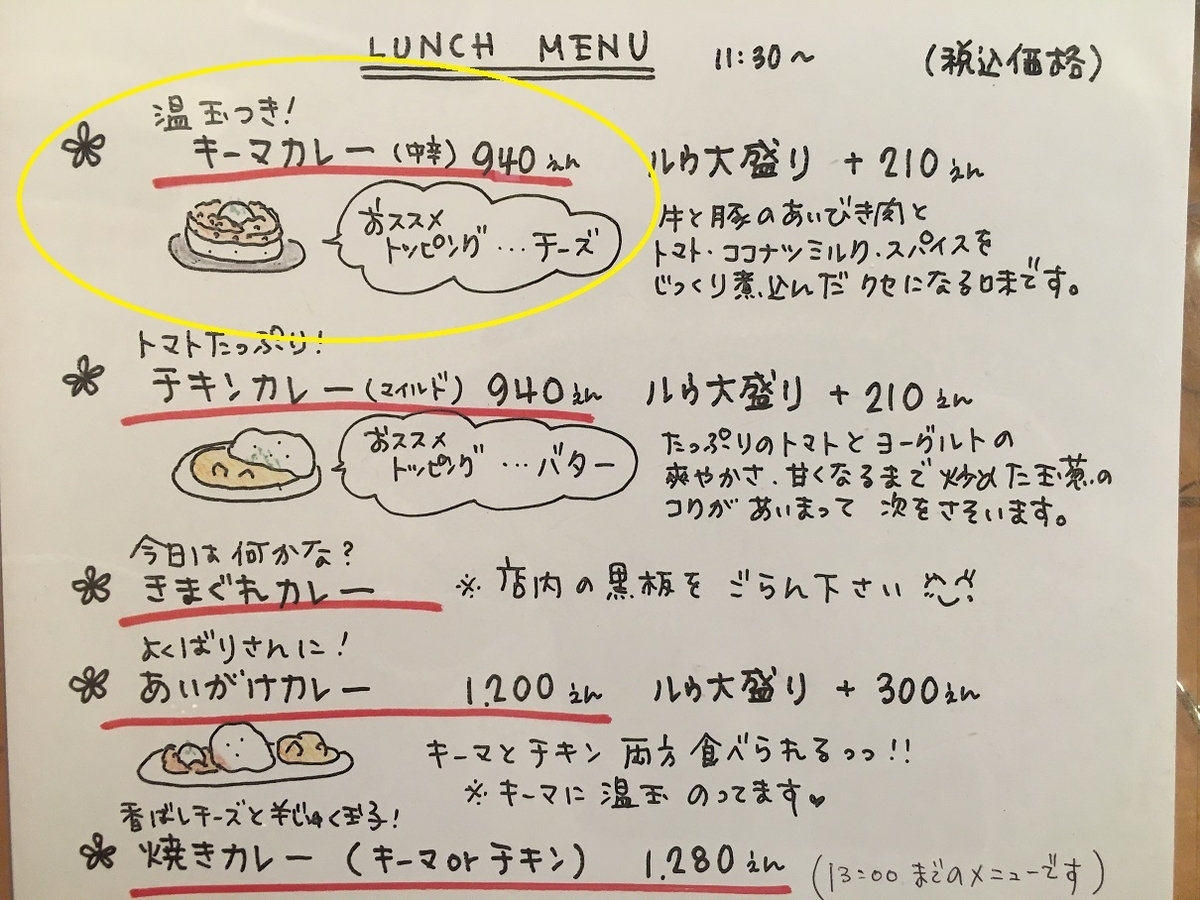 LUNCH MENU 11:30～ (税込価格)
温玉つき!
キーマカレー(中辛) 940えん ルウ大盛り +210えん
おススメ
トッピング…チーズ
牛と豚のあいびき肉と
トマト・ココナツミルク・スパイスを
じっくり煮込んだクセになる味です。
トマトたっぷり!
チキンカレー(マイルド) 940えん ルウ大盛り +210えん
おススメ
トッピング…バター
たっぷりのトマトとヨーグルトの
爽やかさ、甘くなるまで炒めた玉葱の
コクがあいまって次をさそいます。
今日は何かな?
きまぐれカレー ※店内の黒板をごらん下さい
よくばりさんに!
あいがけカレー 1.200えん ルウ大盛り +300えん
キーマとチキン両方食べられるっっ!!
※キーマに温玉のってます♥
香ばしチーズと半じゅく玉子!
焼きカレー (キーマorチキン) 1.280えん (13:00までのメニューです)